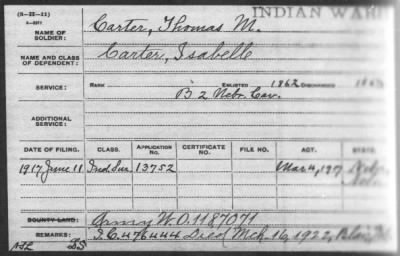 (R-22-23)
INDIAN WARS
NAME OF SOLDIER: Carter, Thomas M.
NAME AND CLASS OF DEPENDENT: Carter, Isabelle
SERVICE: RANK ENLISTED 1862 DISCHARGED
B 2 Nebr. Cav.
ADDITIONAL SERVICE:
DATE OF FILING. CLASS. APPLICATION No. CERTIFICATE NO. FILE NO. ACT. STATE.
1917 June 11 Ind. Sur. 13752 Mar 4, 1917
BOUNTY LAND: Army W.O. 1187071
REMARKS: S.C. 476444 Died Mch. 16, 1922, Blair,